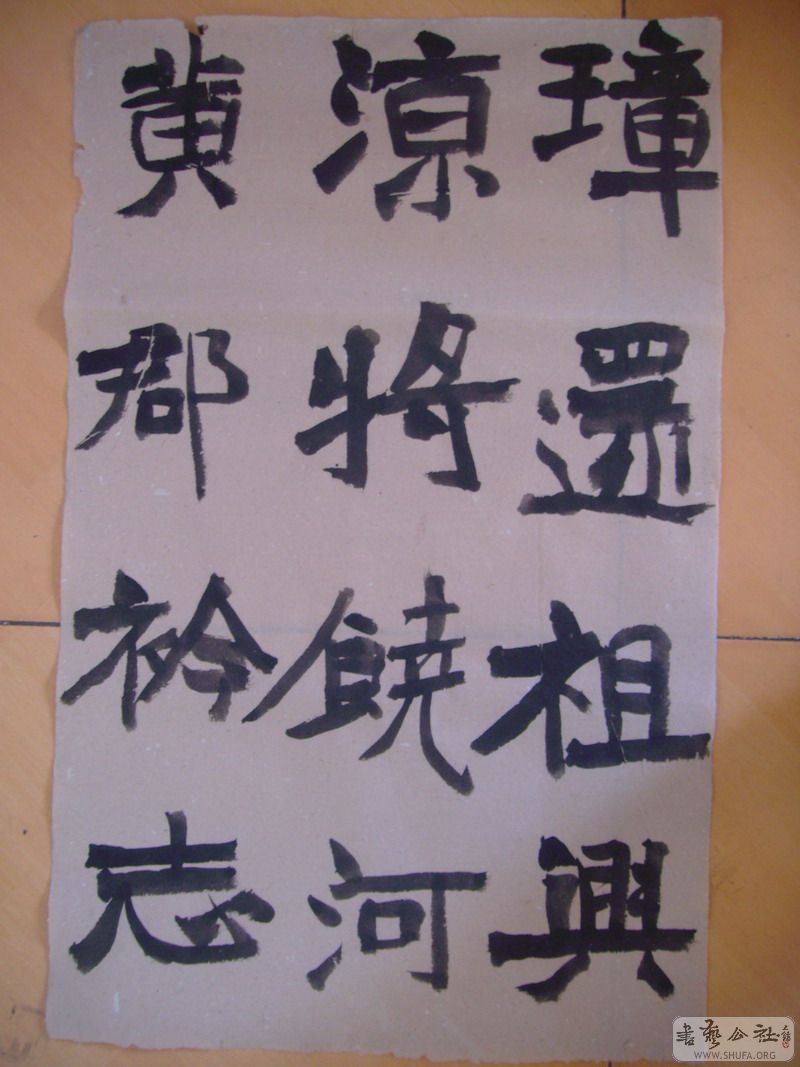 璋還祖興
涼將饒河
黄郡衿志
書藝公社
WWW.SHUFA.ORG